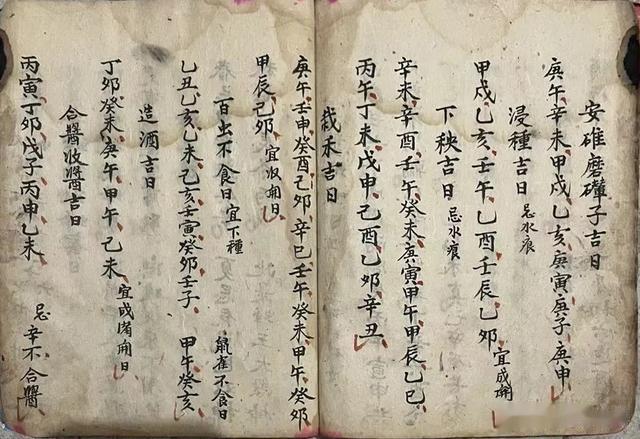 安碓磨礲子吉日
庚午辛未甲戌乙亥庚寅庚子庚申
浸種吉日 忌水痕
甲戌乙亥壬午乙酉壬辰乙卯 宜成開
下秧吉日 忌水痕
辛未辛酉壬午癸未庚寅甲午甲辰乙巳
丙午丁未戊申己酉乙卯辛丑
栽禾吉日
庚午壬申癸酉己卯辛巳壬午癸未甲午癸卯
甲辰己卯 宜收開日
百虫不食日 宜下種 鼠雀不食日
乙丑乙亥乙未己亥壬寅癸卯壬子 甲午癸亥
造酒吉日
丁卯癸未庚午甲午己未 宜成滿開日
合醬收醬吉日
丙寅丁卯戊子丙申乙未 忌辛不合醬